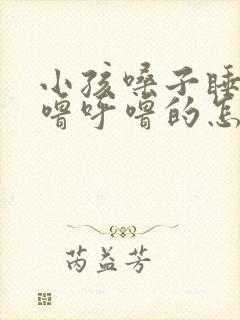 小孩嗓子睡
噜呼噜的怎
芮益芳